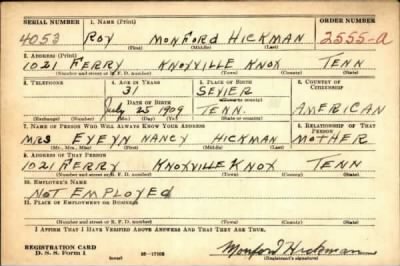 SERIAL NUMBER 1. NAME (Print) ORDER NUMBER
4053 ROY MONFORD HICKMAN 2555-A
(First) (Middle) (Last)
2. ADDRESS (Print)
1021 FERRY KNOXVILLE KNOX TENN
(Number and street or R. F. D. number) (Town) (County) (State)
3. TELEPHONE 4. AGE IN YEARS 5. PLACE OF BIRTH 6. COUNTRY OF CITIZENSHIP
31 SEVIER
DATE OF BIRTH (Town or county)
July 25 1909 TENN. AMERICAN
(Mo.) (Day) (Yr.) (State or country)
7. NAME OF PERSON WHO WILL ALWAYS KNOW YOUR ADDRESS 8. RELATIONSHIP OF THAT PERSON
MRS EVEYN NANCY HICKMAN MOTHER
(Mr., Mrs., Miss) (First) (Middle) (Last)
9. ADDRESS OF THAT PERSON
1021 FERRY KNOXVILLE KNOX TENN
(Number and street or R. F. D. number) (Town) (County) (State)
10. EMPLOYER'S NAME
NOT EMPLOYED
11. PLACE OF EMPLOYMENT OR BUSINESS
(Number and street or R. F. D. number) (Town) (County) (State)
I AFFIRM THAT I HAVE VERIFIED ABOVE ANSWERS AND THAT THEY ARE TRUE.
REGISTRATION CARD
D. S. S. Form 1 (over) Monford Hickman
(Registrant's signature)